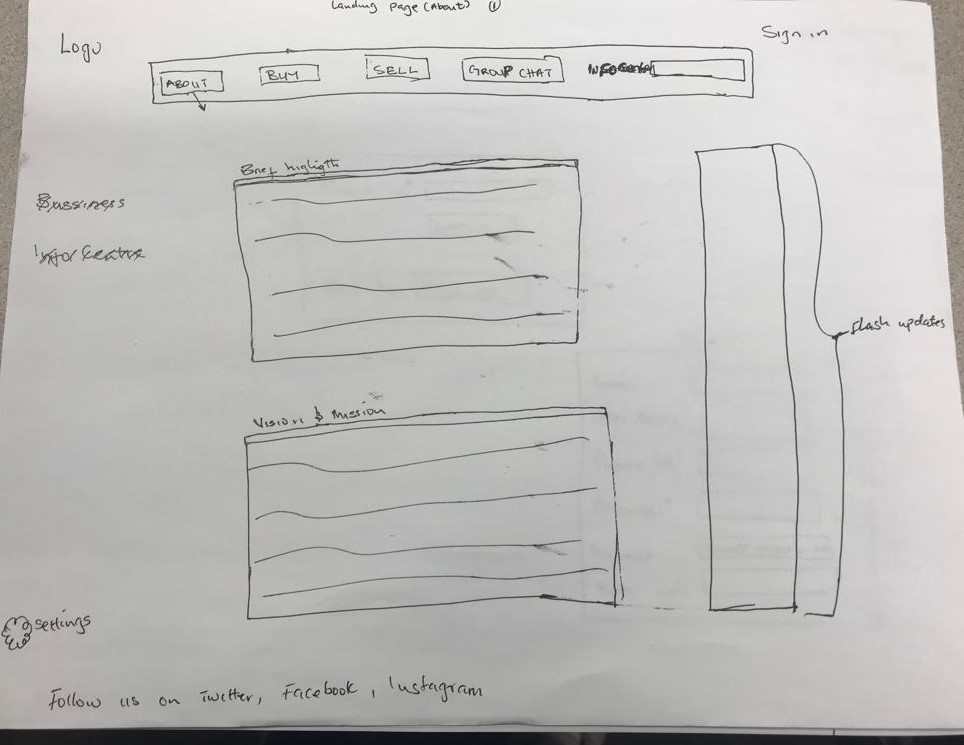 Landing page (About) ①
Logo
Sign in
ABOUT
BUY
SELL
GROUP CHAT
Brief higligth
Bussiness
Flash updates
Vision & Mission
settings
Follow us on Twitter, Facebook, Instagram